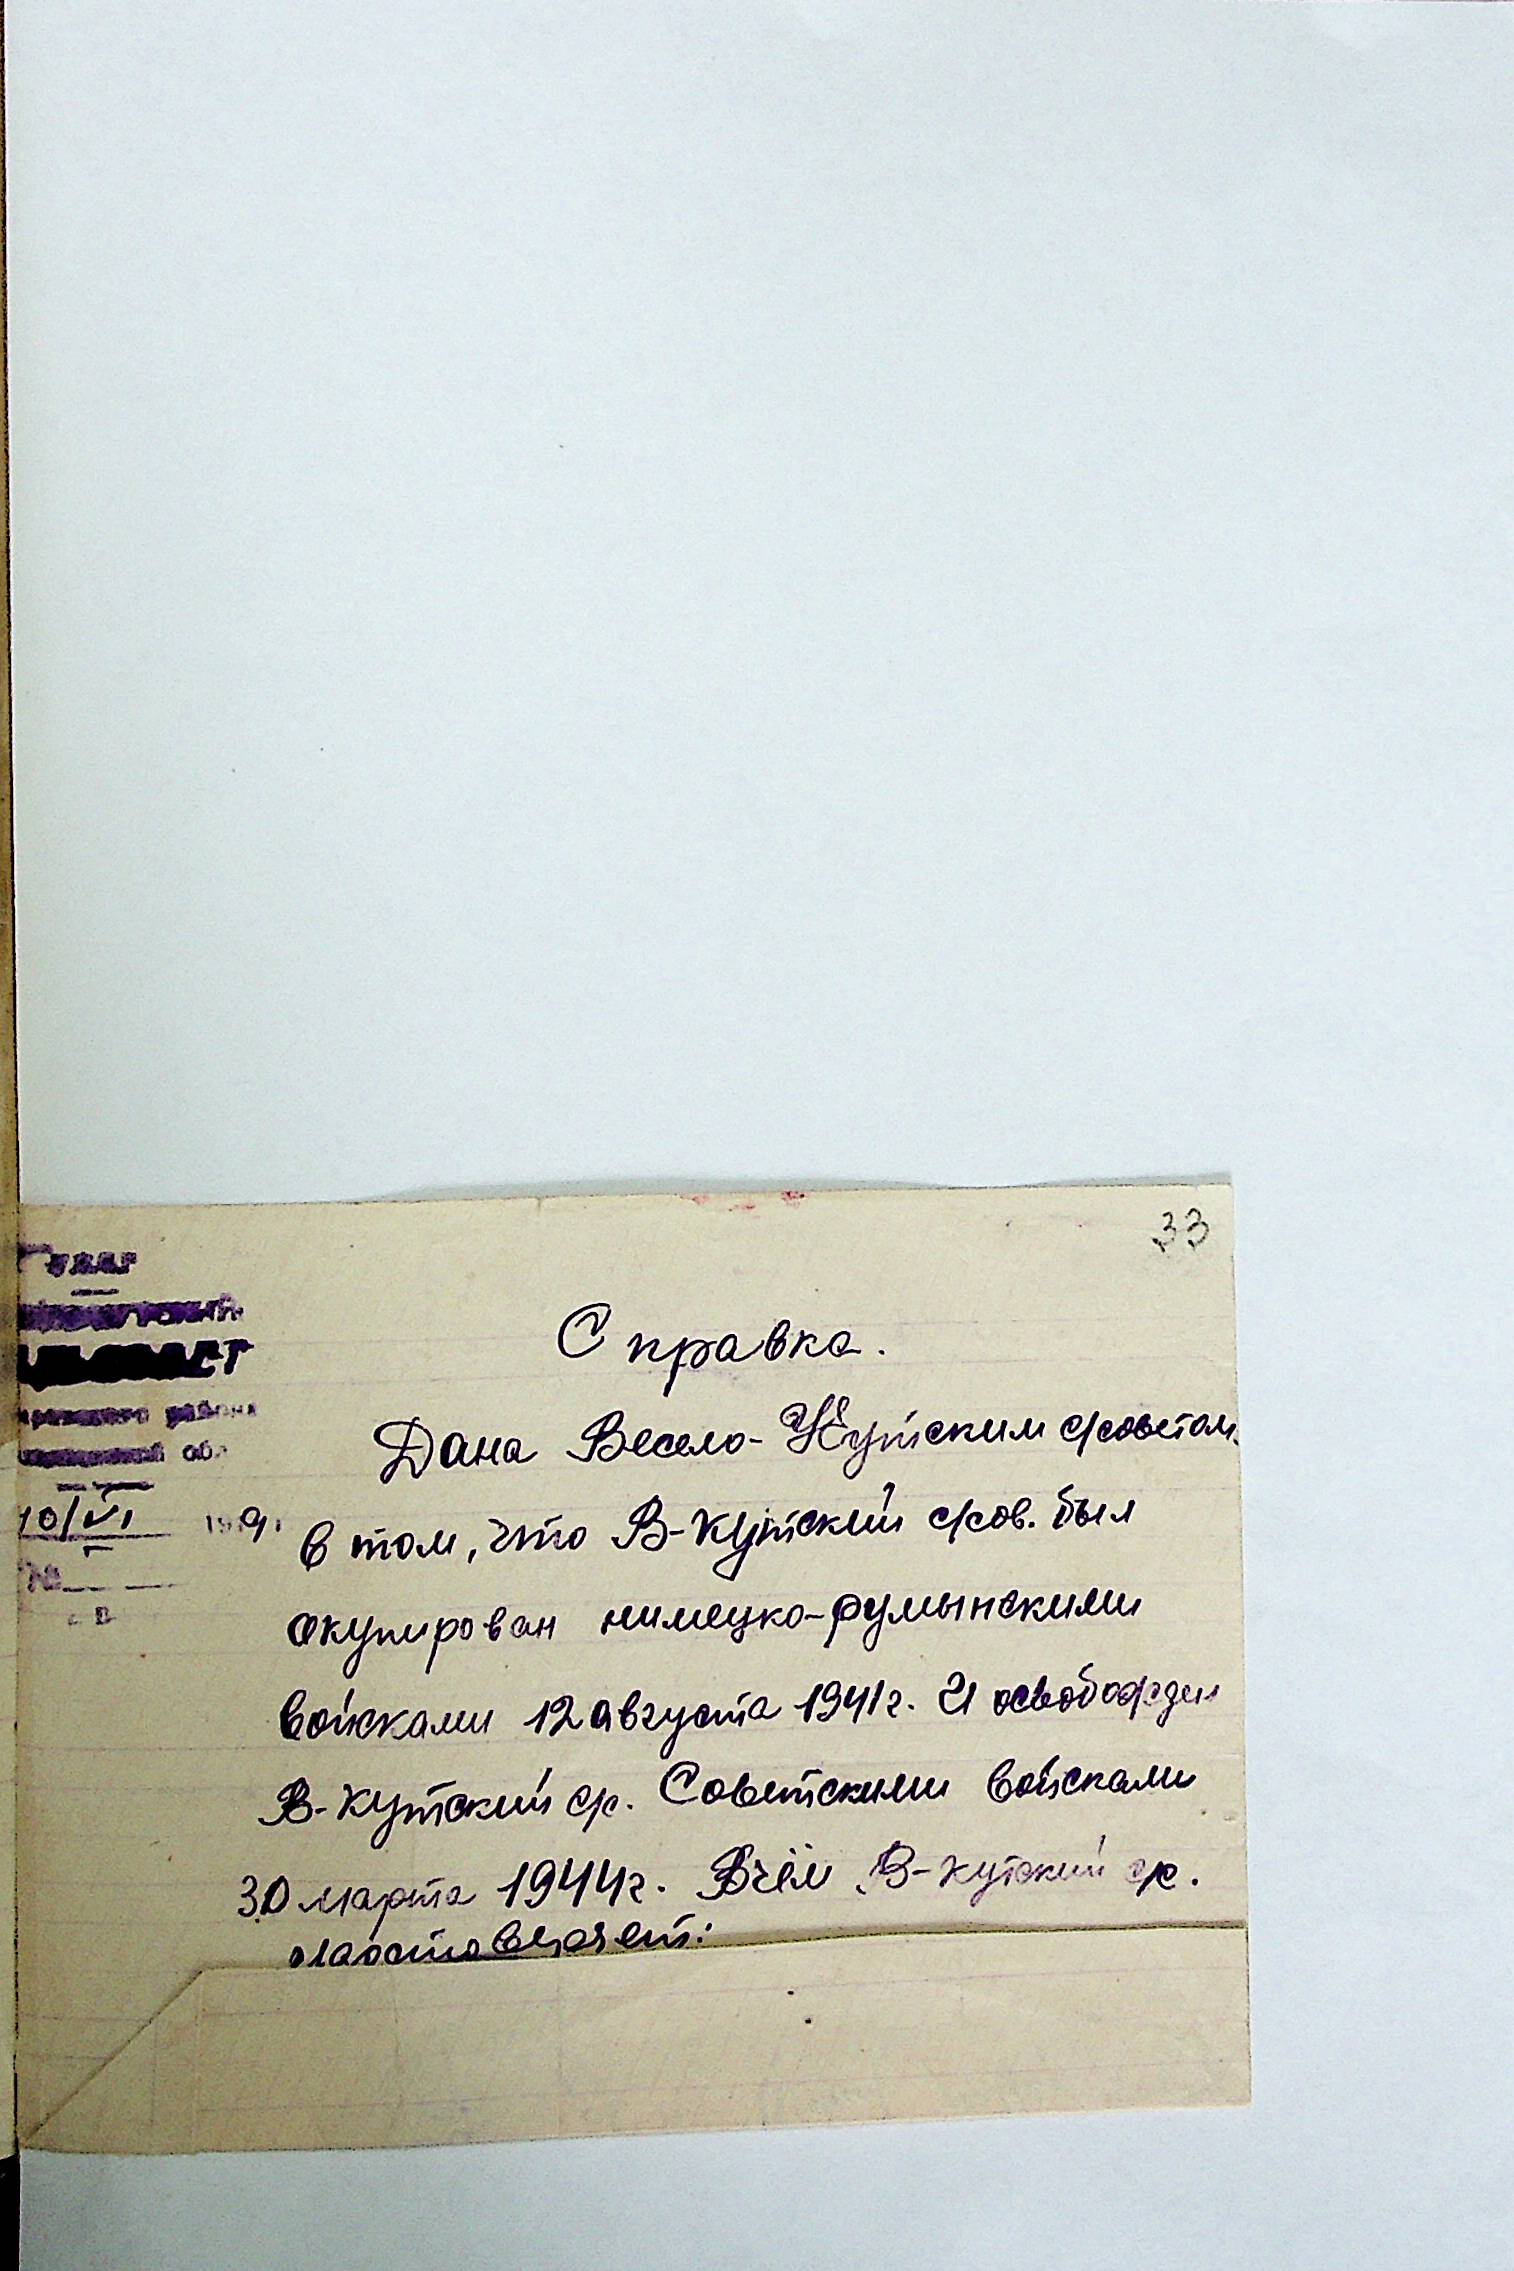 33
Справка.
Дана Весело-Кутским с/советом
10/VI 9
В том, что В-Кутский с/сов. был
№
окупирован нимецко-румынскими
войсками 12 августа 1941г. И освобожден
В-Кутский с/с. Советскими войсками
30 марта 1944г. Вчём В-Кутский с/с.